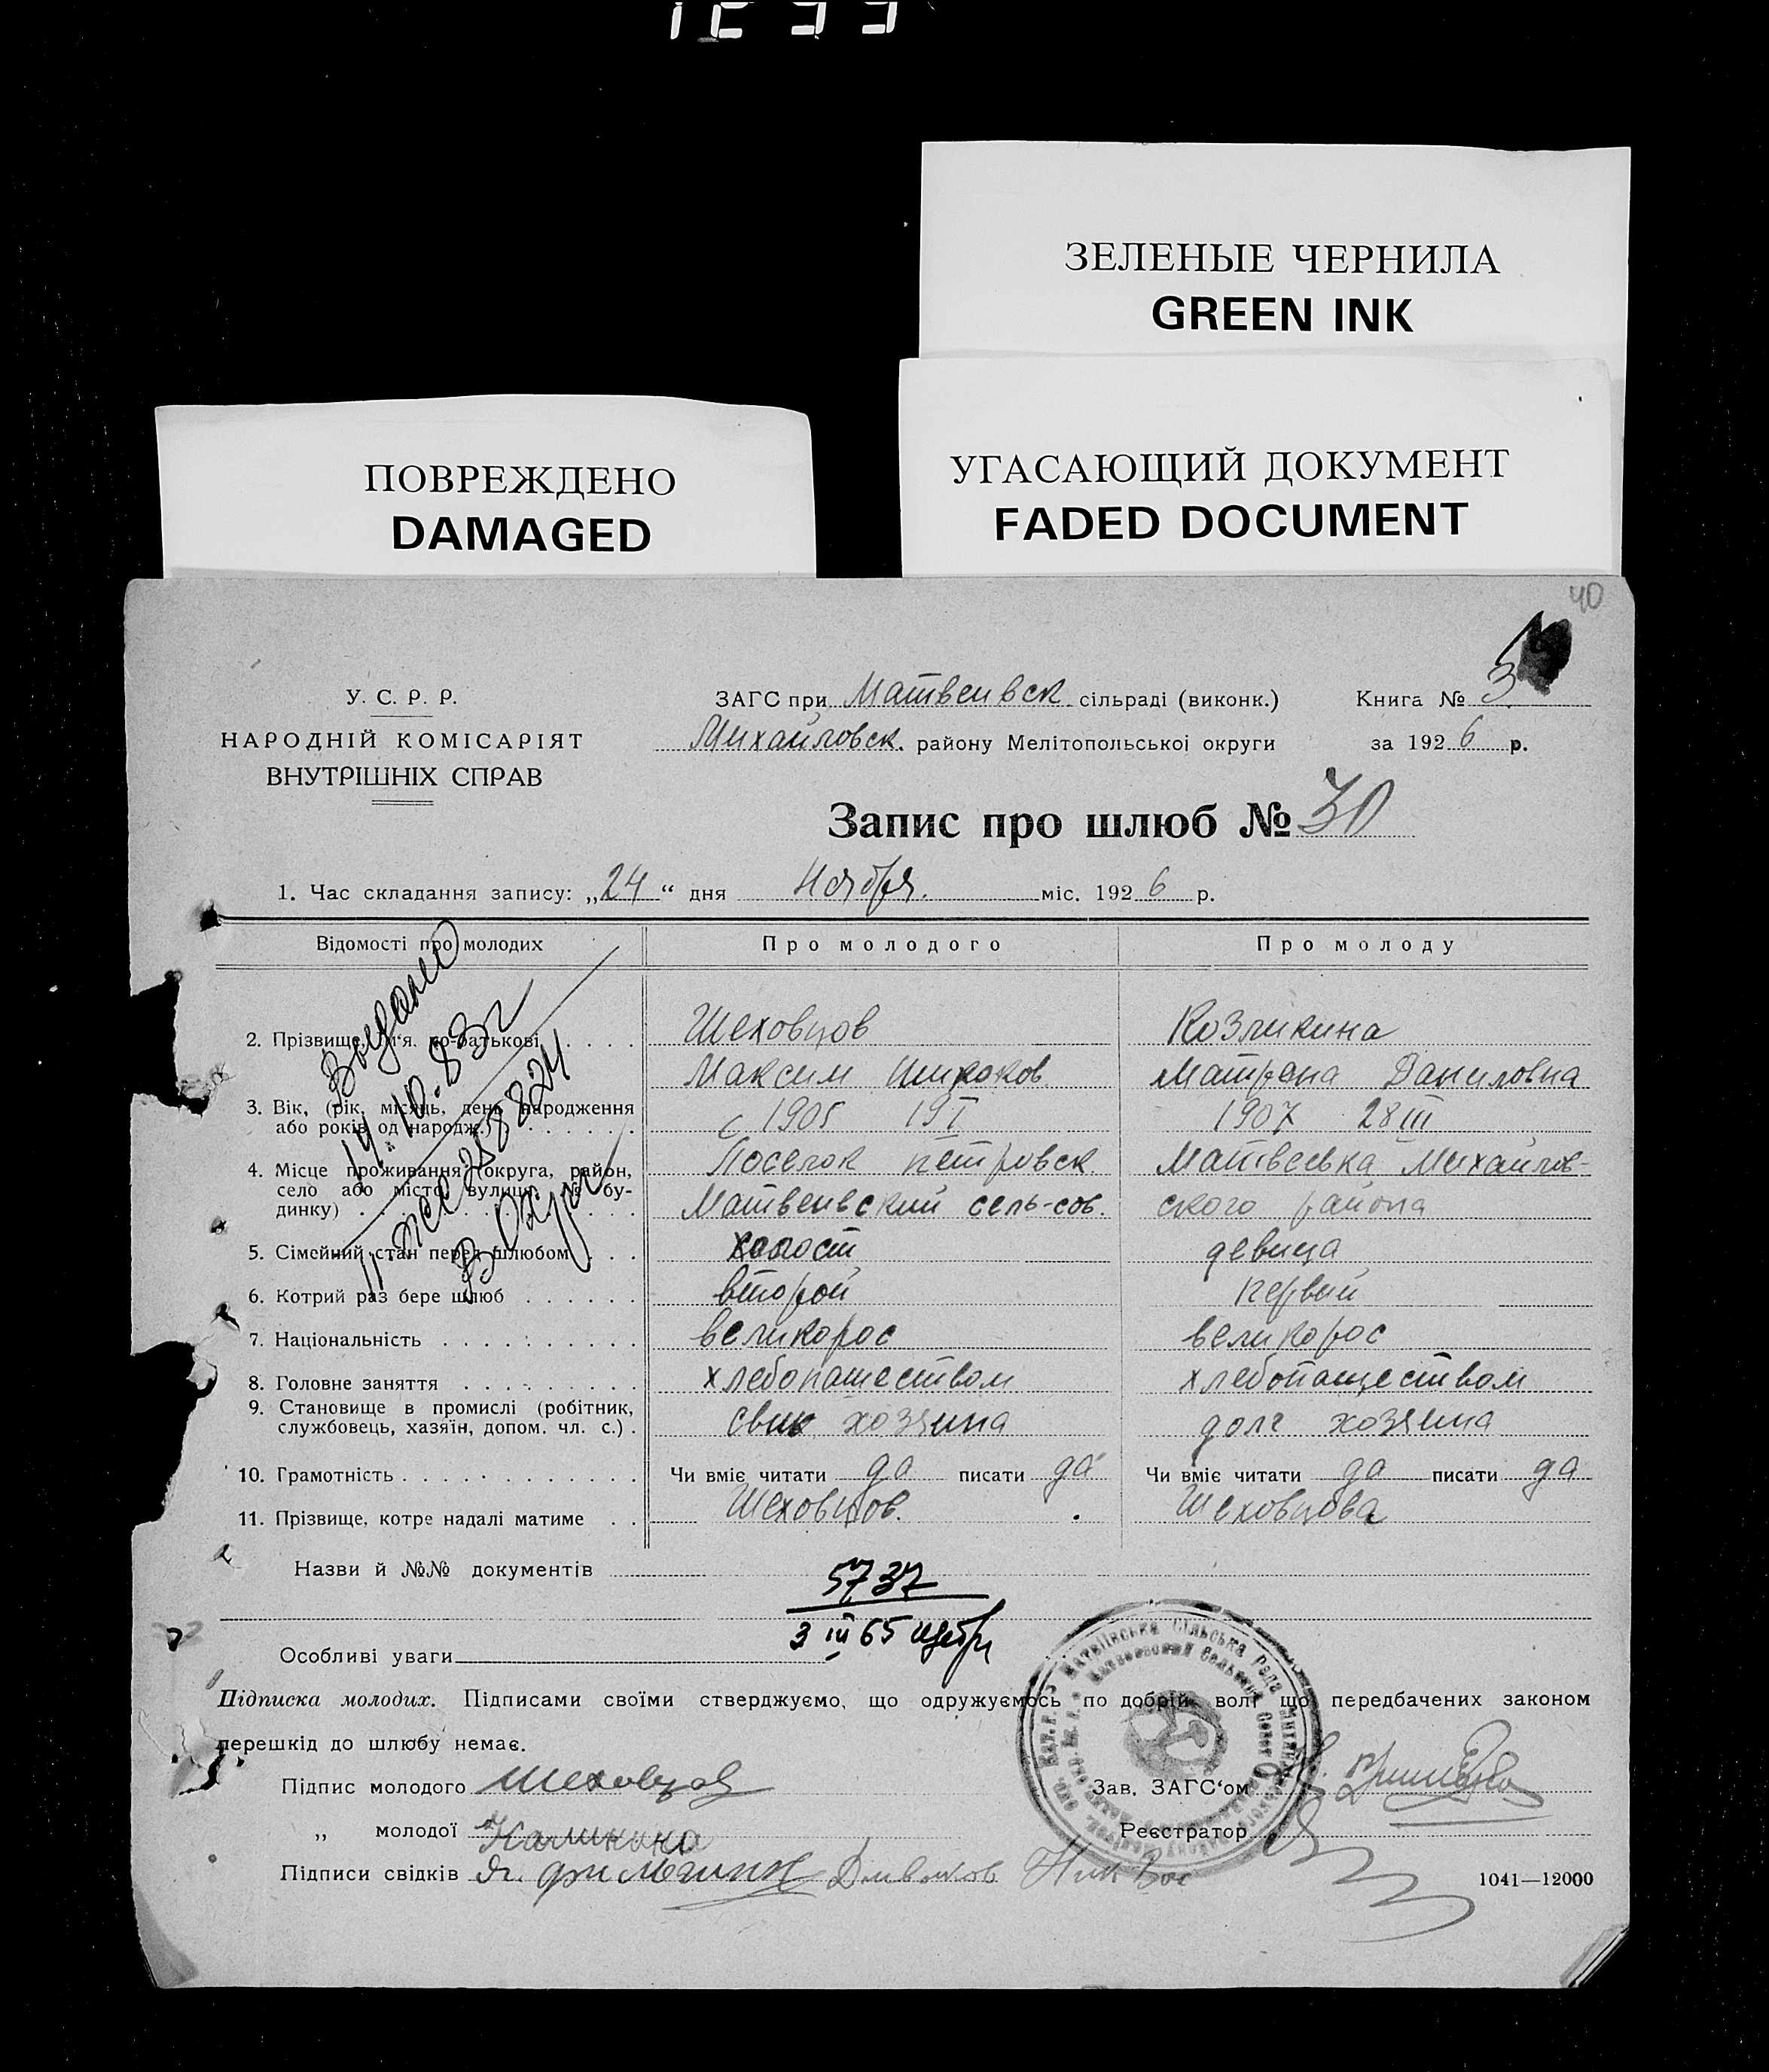 ЗЕЛЕНЫЕ ЧЕРНИЛА
GREEN INK
ПОВРЕЖДЕНО
DAMAGED
УГАСАЮЩИЙ ДОКУМЕНТ
FADED DOCUMENT
40
У. С. Р. Р.
НАРОДНІЙ КОМІСАРІЯТ
ВНУТРІШНІХ СПРАВ
ЗАГС при Матвеивск. сільраді (виконк.) Книга № 3
Михайловск. району Мелітопольської округи за 1926 р.
Запис про шлюб № 30
1. Час складання запису: „24“ дня Ноября. міс. 1926 р.
Відомості про молодих Про молодого Про молоду
2. Прізвище, ім'я, по-батькові Шеховцов Козликина
Максим Матрена Даниловна
3. Вік, (рік, місяць, день народження
або років од народж.) 1905 19 I 1907 28 III
4. Місце проживання (округа, район, Поселок Петровск. Матвеевка Михайлов-
село або місто, вулиця, № бу-
динку) Матвеивский сель-сов. ского района
5. Сімейний стан перед шлюбом холост девица
6. Котрий раз бере шлюб второй первий
7. Національність великорос великорос
8. Головне заняття хлебопашеством хлебопаществом
9. Становище в промислі (робітник,
службовець, хазяїн, допом. чл. с.) хозяина хозяина
10. Грамотність Чи вміє читати да писати да Чи вміє читати да писати да
11. Прізвище, котре надалі матиме Шеховцов. Шеховцова
14.10.83г
Назви й №№ документів
5737
3 III 65
Особливі уваги
Підписка молодих. Підписами своїми стверджуємо, що одружуємось по добрій волі що передбачених законом
перешкід до шлюбу немає.
Підпис молодого Шеховцов Зав. ЗАГС‘ом
„ молодої Калинина Реєстратор
Підписи свідків
1041—12000